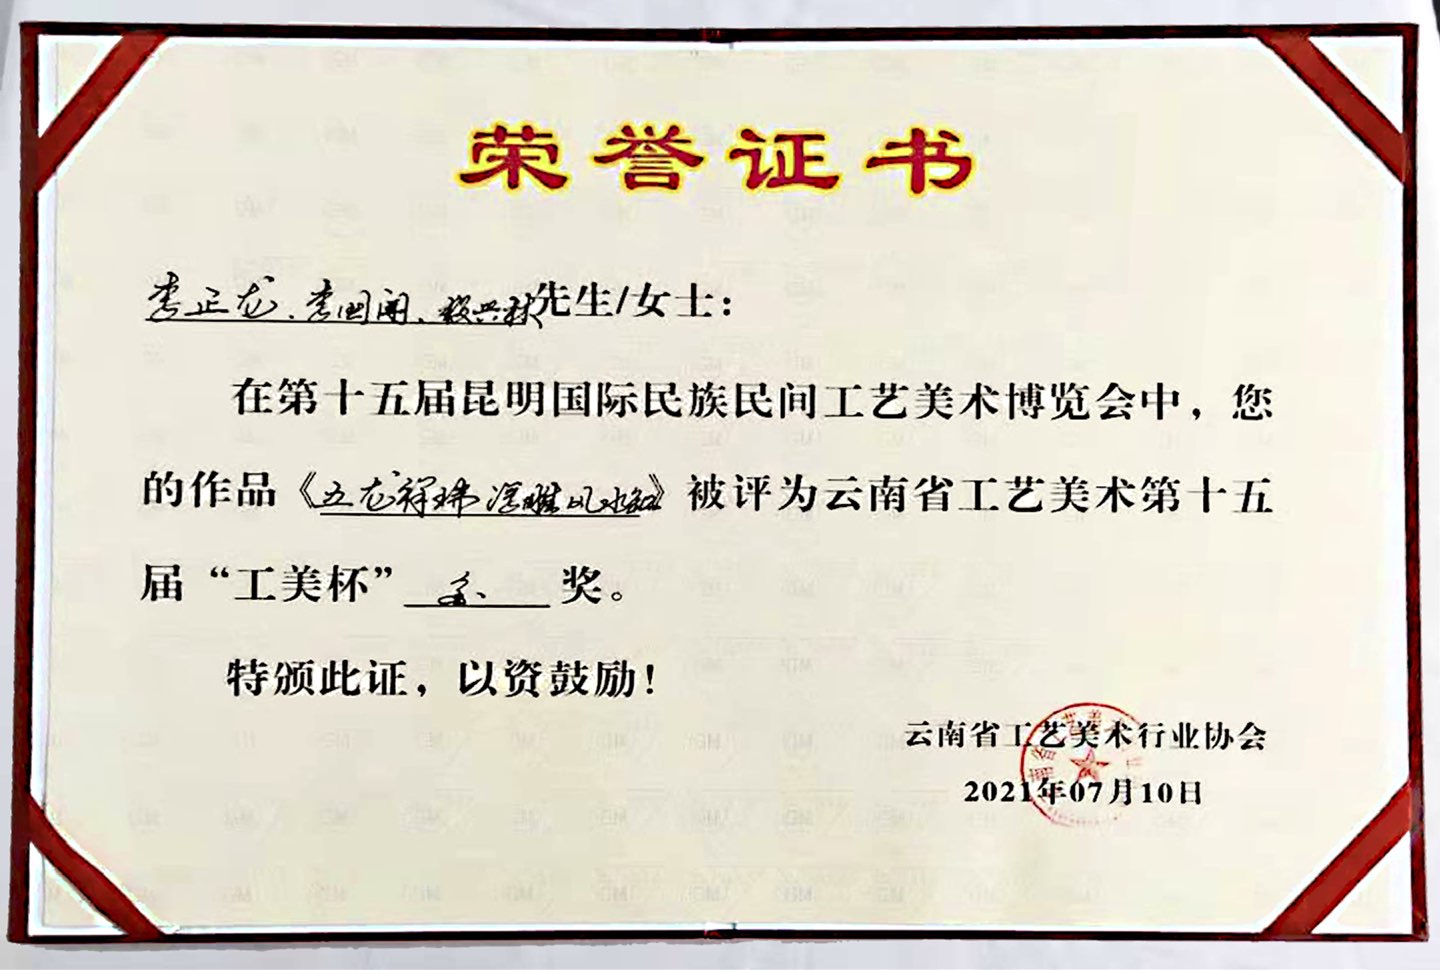 荣誉证书
李正龙、李国闻、段兴秋先生/女士：
在第十五届昆明国际民族民间工艺美术博览会中，您
的作品《五龙祥瑞 风水缸》被评为云南省工艺美术第十五
届“工美杯” 金 奖。
特颁此证，以资鼓励！
云南省工艺美术行业协会
2021年07月10日